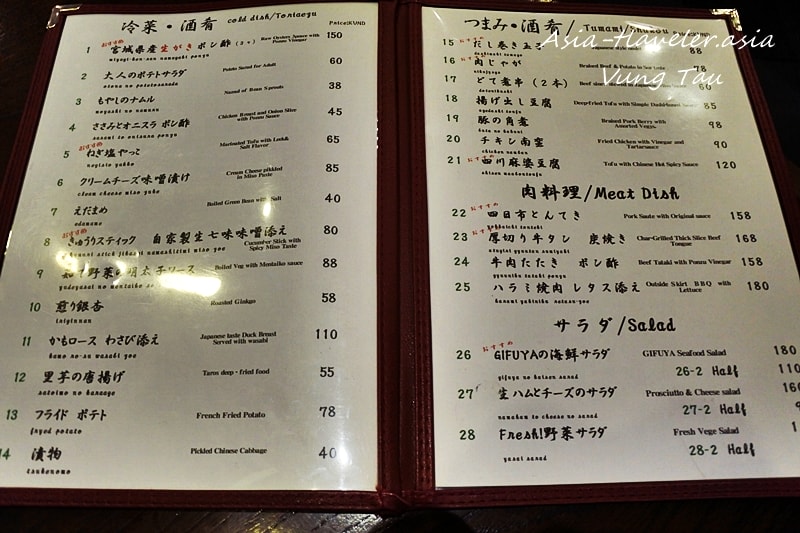 冷菜・酒肴 cold dish/Toritaezu Price(KVND)
おすすめ
1 宮城県産生がきポン酢 Raw Oysters 3piece with Ponzu Vinegar 150
miyagi-ken-san namagaki ponzu
2 大人のポテトサラダ Potato Sarad for Adult 60
otona no potatosarada
3 もやしのナムル Namul of Bean Sprouts 38
moyashi no namuru
4 ささみとオニスラ ポン酢 Chicken Breast and Onion Slice with Ponzu Sauce 45
sasami to onisura ponzu
おすすめ
5 ねぎ塩やっこ Marinated Tofu with Leek& Salt Flavor 65
negisio yakko
6 クリームチーズ味噌漬け Cream Cheese pikkled in Miso Paste 85
cleam cheese miso zuke
7 えだまめ Boiled Green Bean with Salt 40
edamame
おすすめ
8 きゅうりスティック 自家製生七味味噌添え Cucumber Stick with Spicy Miso Taste 80
9 野菜の明太子ソース Boiled Veg with Mentaiko sauce 88
10 煎り銀杏 Roasted Ginkgo 58
iriginnan
11 かもロース わさび添え Japanese taste Duck Breast Served with wasabi 110
kamo no-su wasabi yoe
12 里芋の唐揚げ Taros deep-fried food 55
satoimo no karaage
13 フライド ポテト French Fried Potato 78
fryed potato
14 漬物 Pickled Chinese Cabbage 40
tsukemono
つまみ・酒肴/Tumami/Shukou
15 おすすめ だし巻き玉子 Japanese style 88
16 おすすめ 肉じゃが Braised Beef & Potato in Soy 78
nikujyaga
17 どて煮串(2本) 60
dotenikushi
18 揚げ出し豆腐 Deep-fried Tofu with 85
agedashi tofu
19 豚の角煮 Braised Pork Berry with Assorted Veges. 98
buta no kakuni
20 チキン南蛮 Fried Chicken with Vinegar and Tartarsauce 90
chicken nanban
おすすめ
21 四川麻婆豆腐 Tofu with Chinese Hot Spicy Sauce 120
肉料理/Meat Dish
おすすめ
22 四日市とんてき Pork Saute with Original sauce 158
yokkaichi tonteki
おすすめ
23 厚切り牛タン 炭焼き Char-Grilled Thick Slice Beef Tongue 168
24 牛肉たたき ポン酢 Beef Tataki with Ponzu Vinegar 158
gyuuniku tataki ponzu
25 ハラミ焼肉 レタス添え Outside Skirt BBQ with Lettuce 180
harami yakiniku
サラダ/Salad
おすすめ
26 GIFUYAの海鮮サラダ GIFUYA Seafood Salad 180
gifuya no kaisen sarad
26-2 Half 110
27 生ハムとチーズのサラダ Prosciutto & Cheese salad
namahamu to cheese no sarad
27-2 Half
28 Fresh!野菜サラダ Fresh Vege Salad
yasai sarad
28-2 Half
Asia-Traveler.asia
Vung Tau